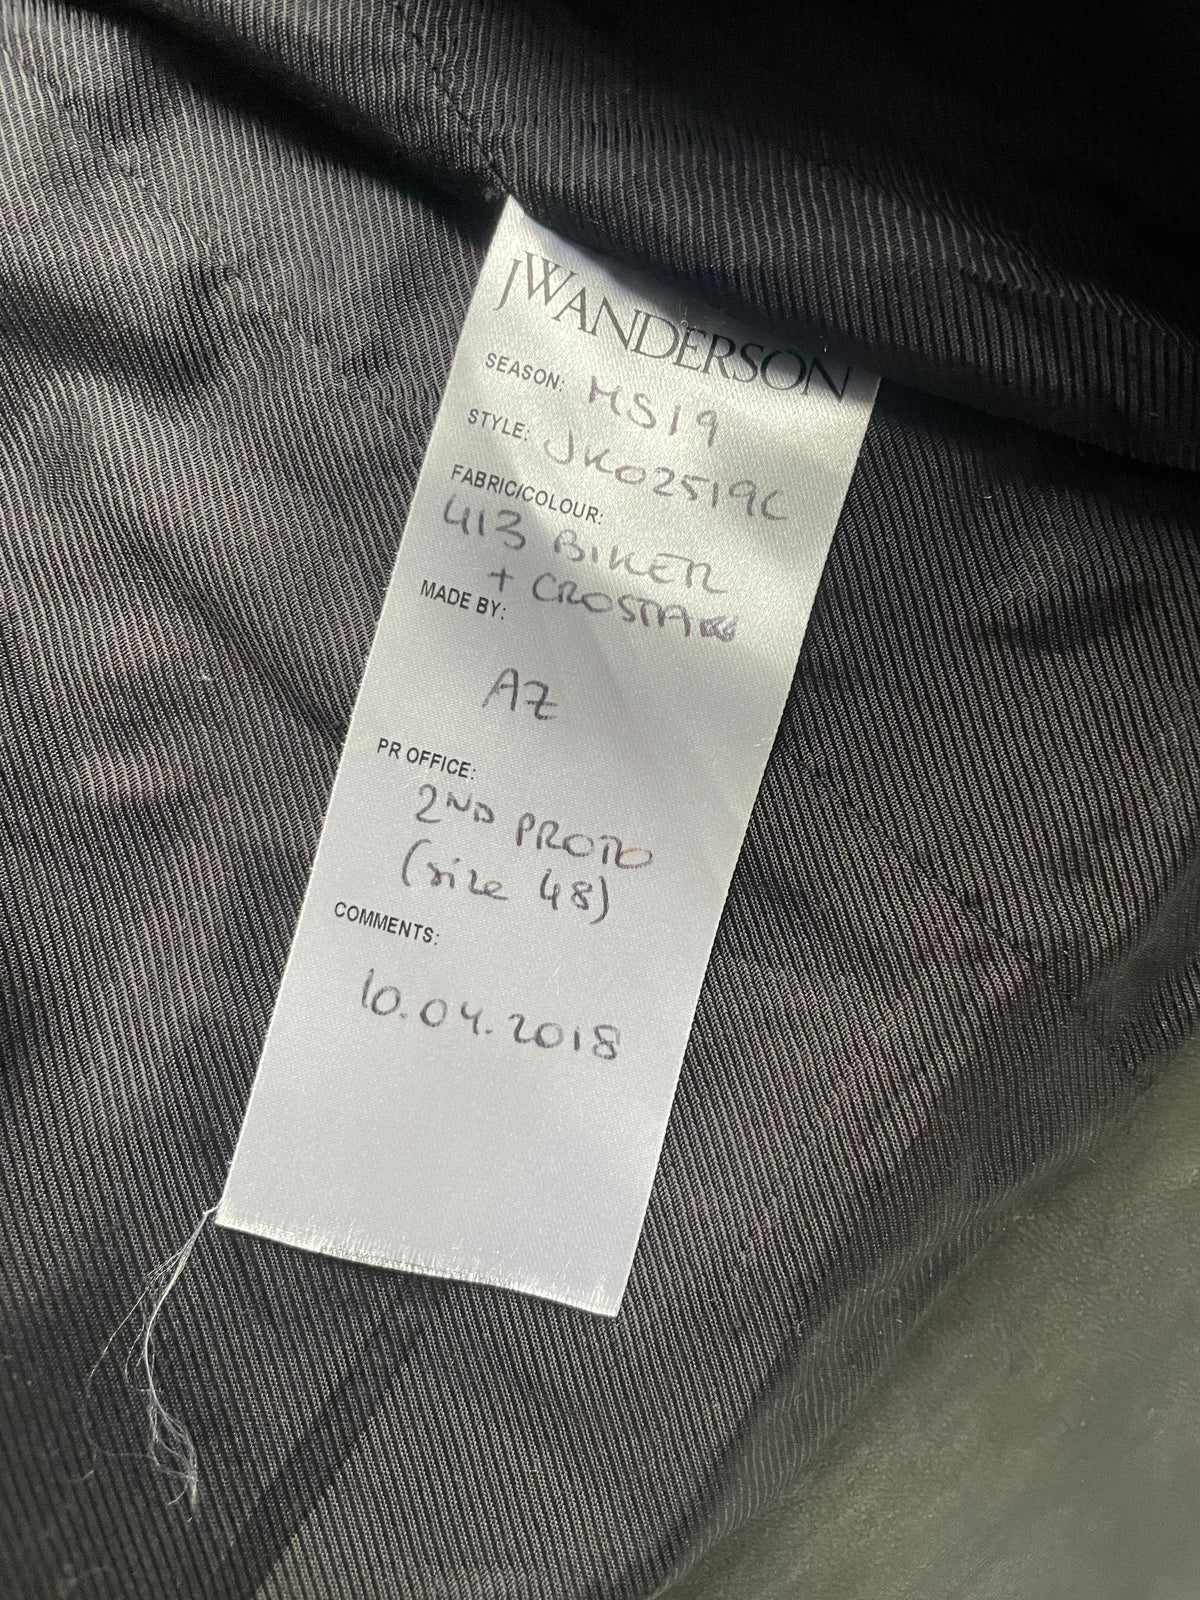 JWANDERSON
SEASON: MS19
STYLE: JK02519C
FABRIC/COLOUR:
413 BIKER
+ CROSTA
MADE BY:
AZ
PR OFFICE:
2ND PROTO
(size 48)
COMMENTS:
10.04.2018